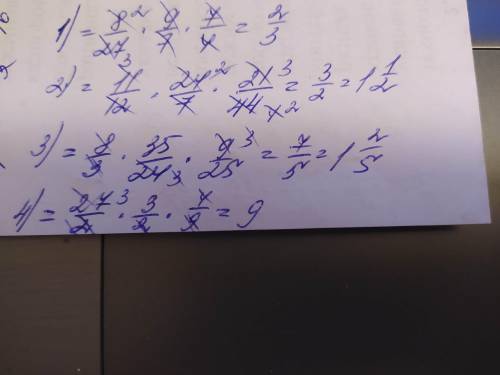 1) = 8/27 · 9/7 · 7/4 = 2/3
2) = 11/12 · 24/7 · 21/44 = 3/2 = 1 1/2
3) = 8/3 · 35/24 · 9/25 = 7/5 = 1 2/5
4) = 27/7 · 3/2 · 7/9 = 9